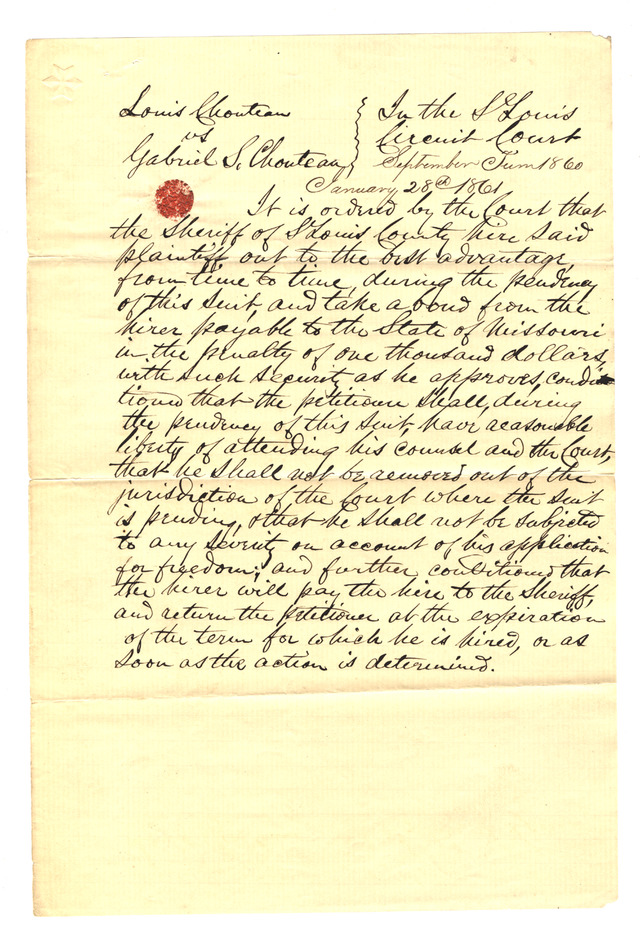 Louis Chouteau
vs
Gabriel S. Chouteau,
In the St Louis
Circuit Court
September Turm 1860
January 28th 1861
It is ordered by the Court that
the Sheriff of St Louis County hire said
plaintiff out to the best advantage
from time to time, during the pendency
of this suit, and take a bond from the
hirer payable to the State of Missouri
in the penalty of one thousand dollars,
with such security as he approves, condi-
tioned that the petitioner shall, during
the pendency of this suit, have reasonable
liberty of attending his counsel and the Court,
that he shall not be removed out of the
jurisdiction of the Court where the suit
is pending, & that he shall not be subjected
to any severity on account of his application
for freedom; and further conditioned that
the hirer will pay the hire to the Sheriff,
and return the petitioner at the expiration
of the term for which he is hired, or as
soon as the action is determined.